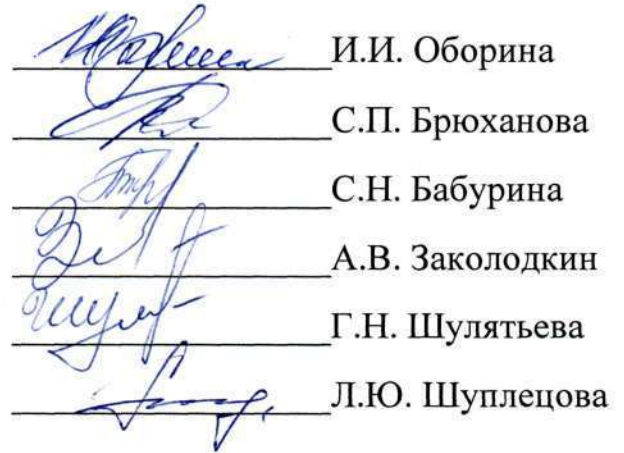 И.И. Оборина
С.П. Брюханова
С.Н. Бабурина
А.В. Заколодкин
Г.Н. Шулятьева
Л.Ю. Шуплецова